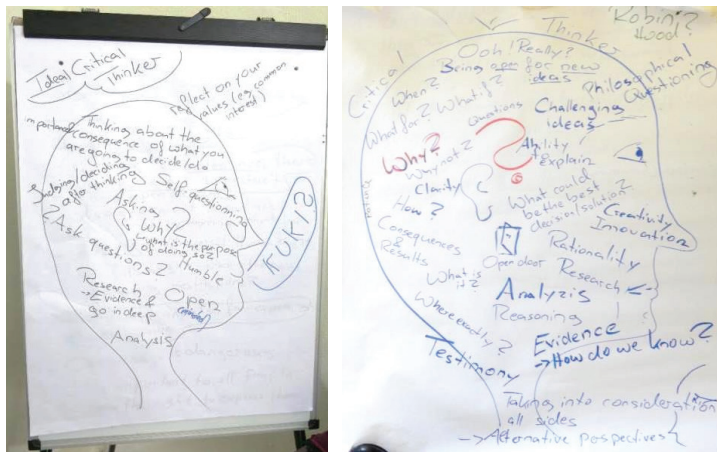 Ideal Critical
Thinker
reflect on your
values (e.g. common
interest)
Thinking about the
consequence of what you
are going to decide/do
Judging/deciding
after thinking
Self-questionning
Asking
WHY?
What is the purpose
of doing so?
Ask
questions?
Humble
KUKIS
Research
→Evidence &
go in deep
Open
minded
Analysis
Critical
Thinker
Robin?
Hood
Ooh! Really?
Being open for new
ideas
Philosophical
Questioning
When?
What for? What if?
Questions
Challenging
ideas
Why?
Why not?
Ability
Explain
Clarity
How?
What could
be the best
decision/solution?
Creativity
Innovation
Consequences
&
Results
Open door
Rationality
What is
it?
Research
Analyzis
Reasoning
Where exactly?
Testimony
Evidence
→How do we know?
Taking into consideration
all sides
→Alternative perspectives